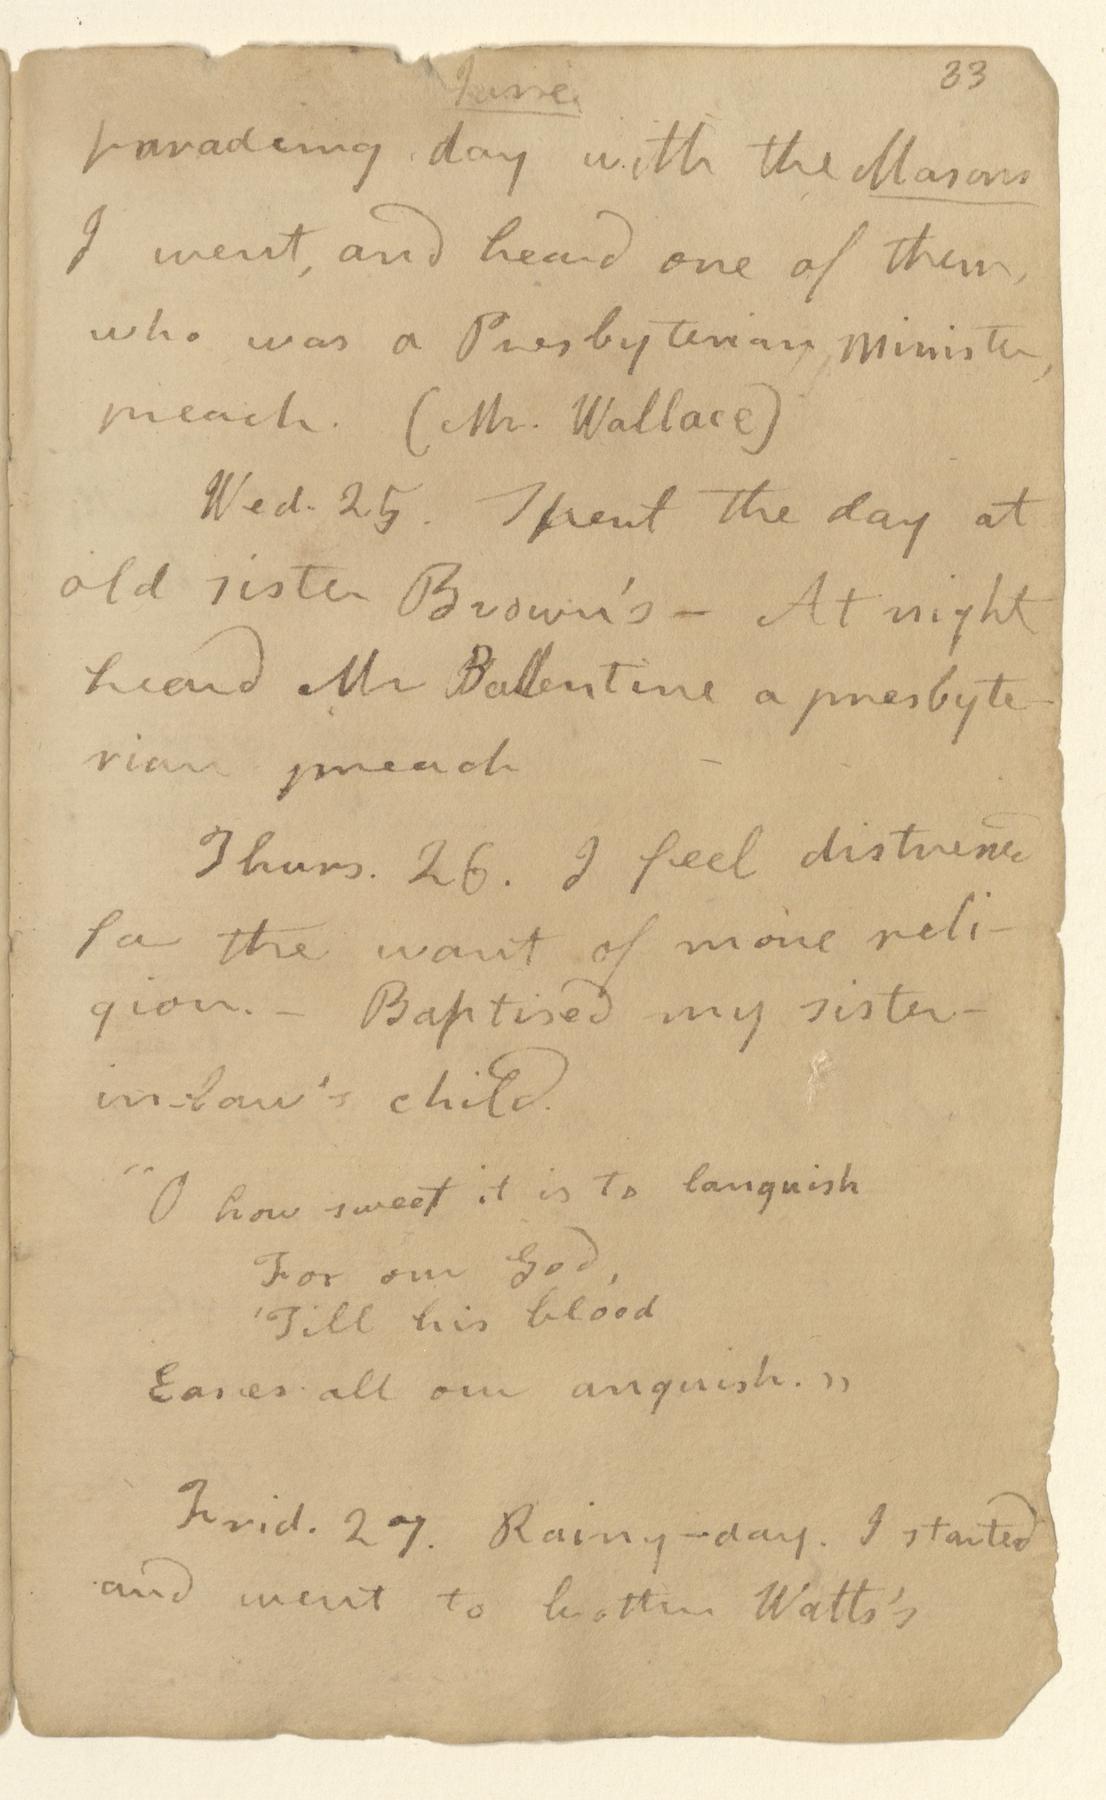 33
June
paradeing day with the Masons
I went, and heard one of them,
who was a Presbyterian, minister,
preach. (Mr. Wallace)
Wed. 25. Spent the day at
old sister Brown's – At night
heard Mr Ballentine a presbyte-
rian preach
Thurs. 26. I feel distressed
for the want of more reli-
gion. – Baptised my sister-
in-law's child.
"O how sweet it is to languish
For our God,
'Till his blood
Eases all our anguish."
Frid. 27. Rainy-day. I started
and went to brother Watts's